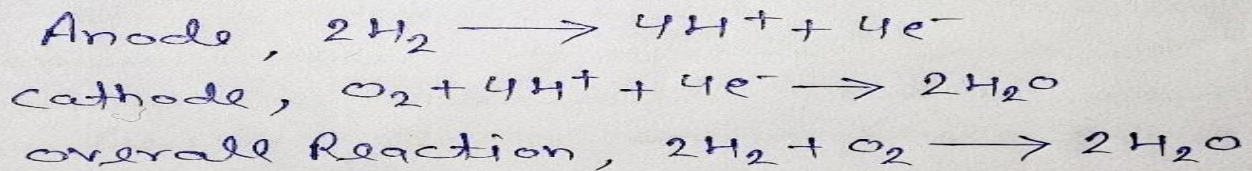 Anode, 2H₂ ⟶ 4H⁺ + 4e⁻
cathode, O₂ + 4H⁺ + 4e⁻ ⟶ 2H₂O
overall Reaction, 2H₂ + O₂ ⟶ 2H₂O